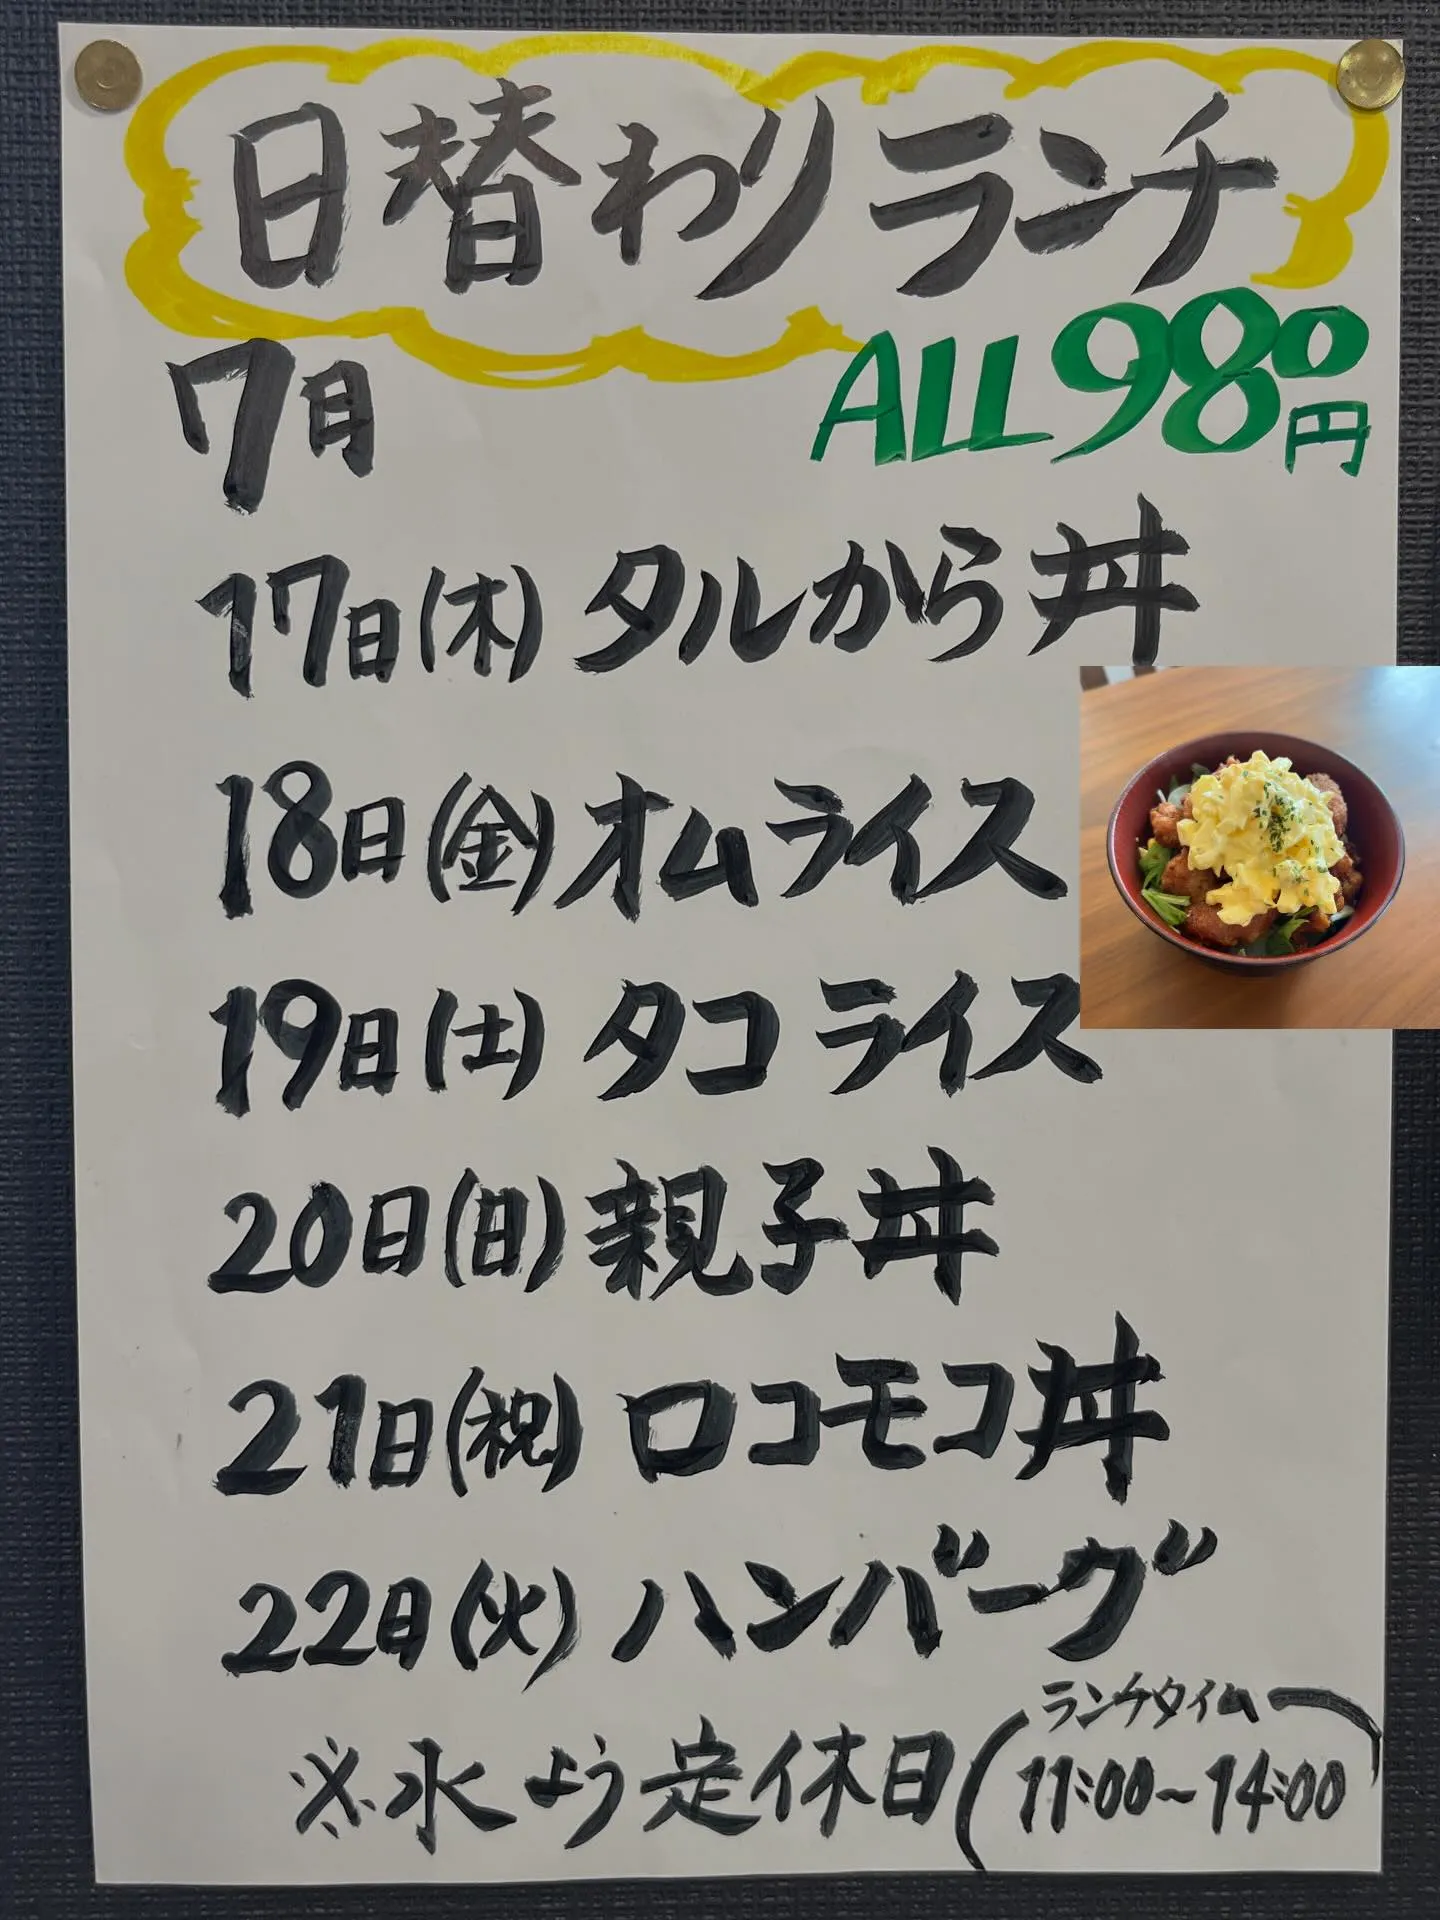 日替わりランチ
7月
ALL980円
17日(木) タルから丼
18日(金) オムライス
19日(土) タコライス
20日(日) 親子丼
21日(祝) ロコモコ丼
22日(火) ハンバーグ
※水よう定休日(ランチタイム
11:00~14:00